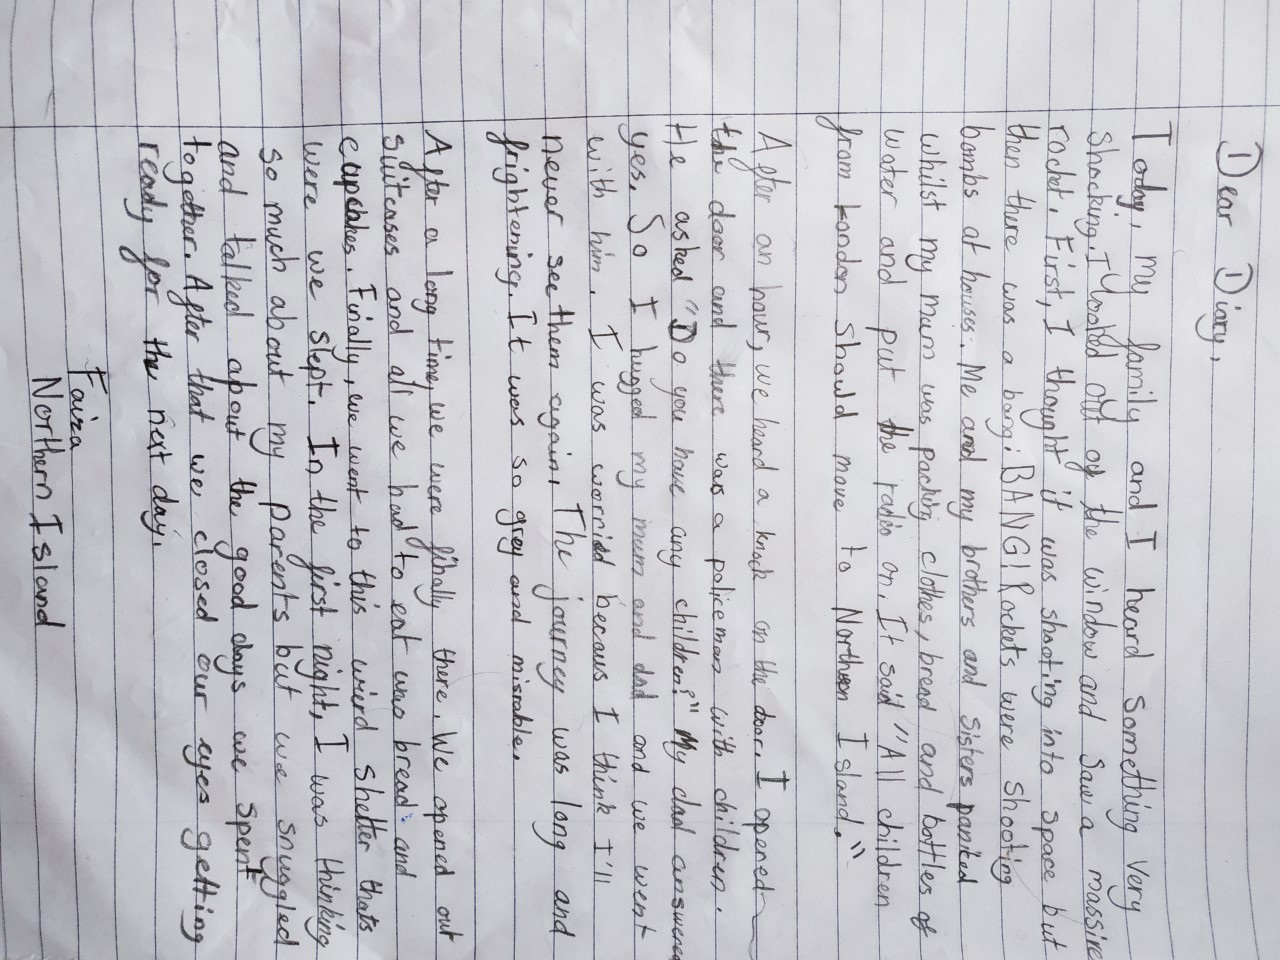 Dear Diary,
Today, my family and I heard something very
shocking. I looked out of the window and saw a massive
rocket. First, I thought it was shooting into space but
then there was a bang: BANG! Rockets were shooting
bombs at houses. Me and my brothers and sisters paniked
whilst my mum was packing clothes, bread and bottles of
water and put the radio on. It said "All children
from London should move to Northern Island."
After an hour, we heard a knock on the door. I opened
the door and there was a policeman with children.
He asked "Do you have any children?" My dad answered
yes. So I hugged my mum and dad and we went
with him. I was worried becaus I think I'll
never see them again. The journey was long and
frightening. It was so grey and misrable.
After a long time, we were finally there. We opened our
suitcases and all we had to eat was bread and
cupcakes. Finally, we went to this wierd shelter thats
were we slept. In the first night, I was thinking
so much about my parents but we snuggled
and talked about the good days we spent
together. After that we closed our eyes getting
ready for the next day.
Faiza
Northern Island